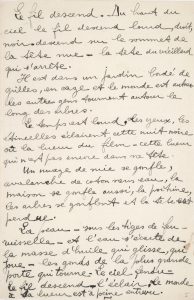 Le fil descend. Du haut du
ciel le fil descend lourd, droit,
noir descend sur le sommet de
la tête nue — la tête du vieillard
qui s'arrête.
Il est dans un jardin bordé de
grilles, en cage et le monde est autour
les autres gens tournent autour le
long des arbres.
Le temps est lourd, les yeux, les
étincelles éclairent cette nuit noire
où la lueur du film — cette lueur
qui n'est pas encore dans sa tête.
Un nuage de mie se gonfle,
avalanche de coton sans eau, la
maison se gonfle aussi, la poitrine,
les arbres se gonflent et la tête est
perdue.
La peau — sous les tiges de
— et l'eau s'écarte de
la masse d'huile qui glisse, qui
joue — les gonds de la plus grande
porte qui tourne. le ciel
le fil descend — l'éclair — le monde
la lueur est à peine entière.